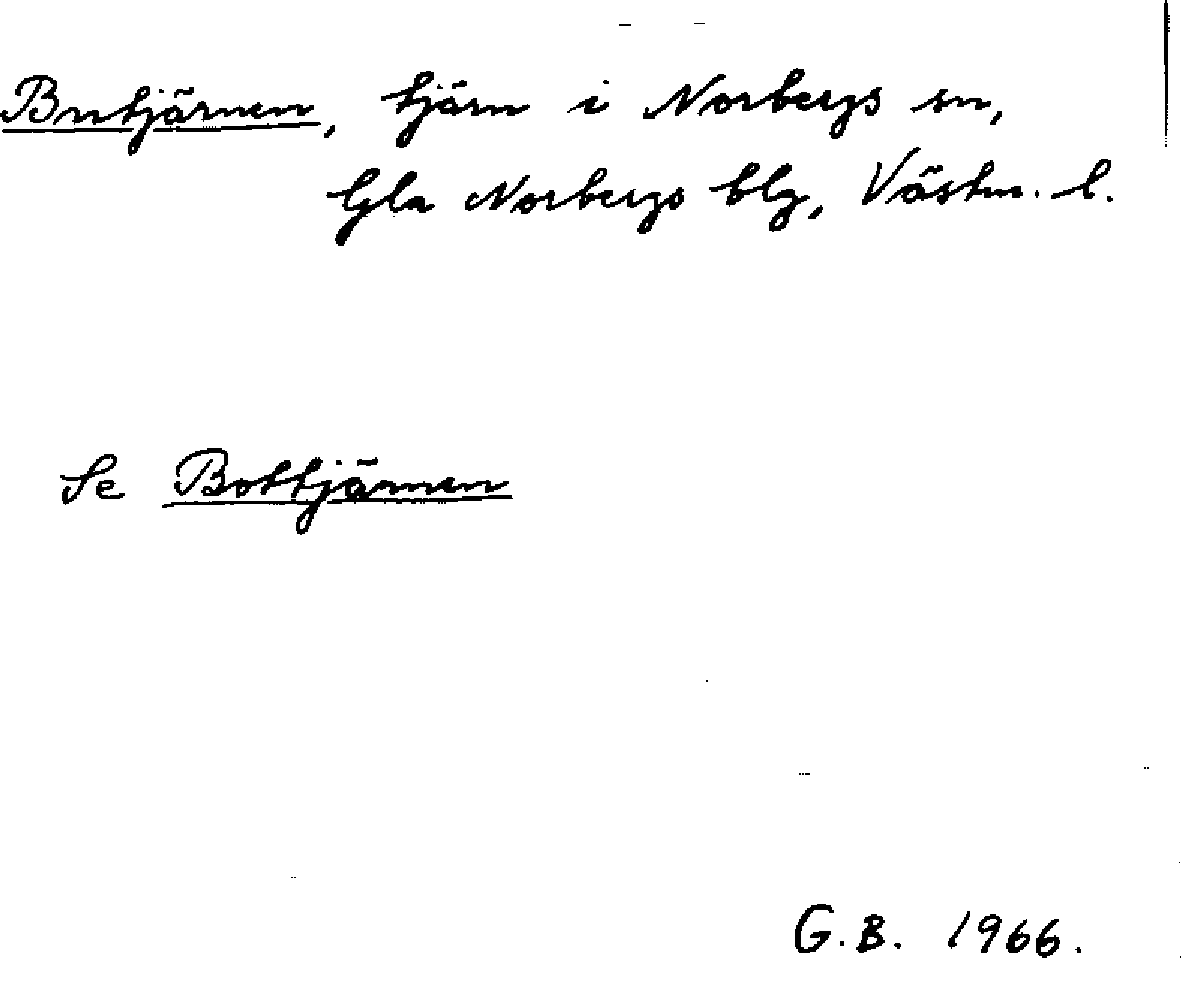 Butjärnen, tjärn i Norbergs sn,
Gla Norbergs blg, Västm. l.
Se Bottjärnen
G.B. 1966.